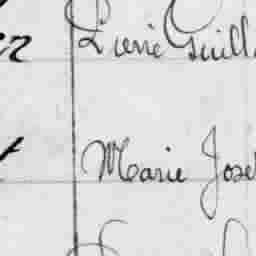 er Pierre Guill
t Marie Jose